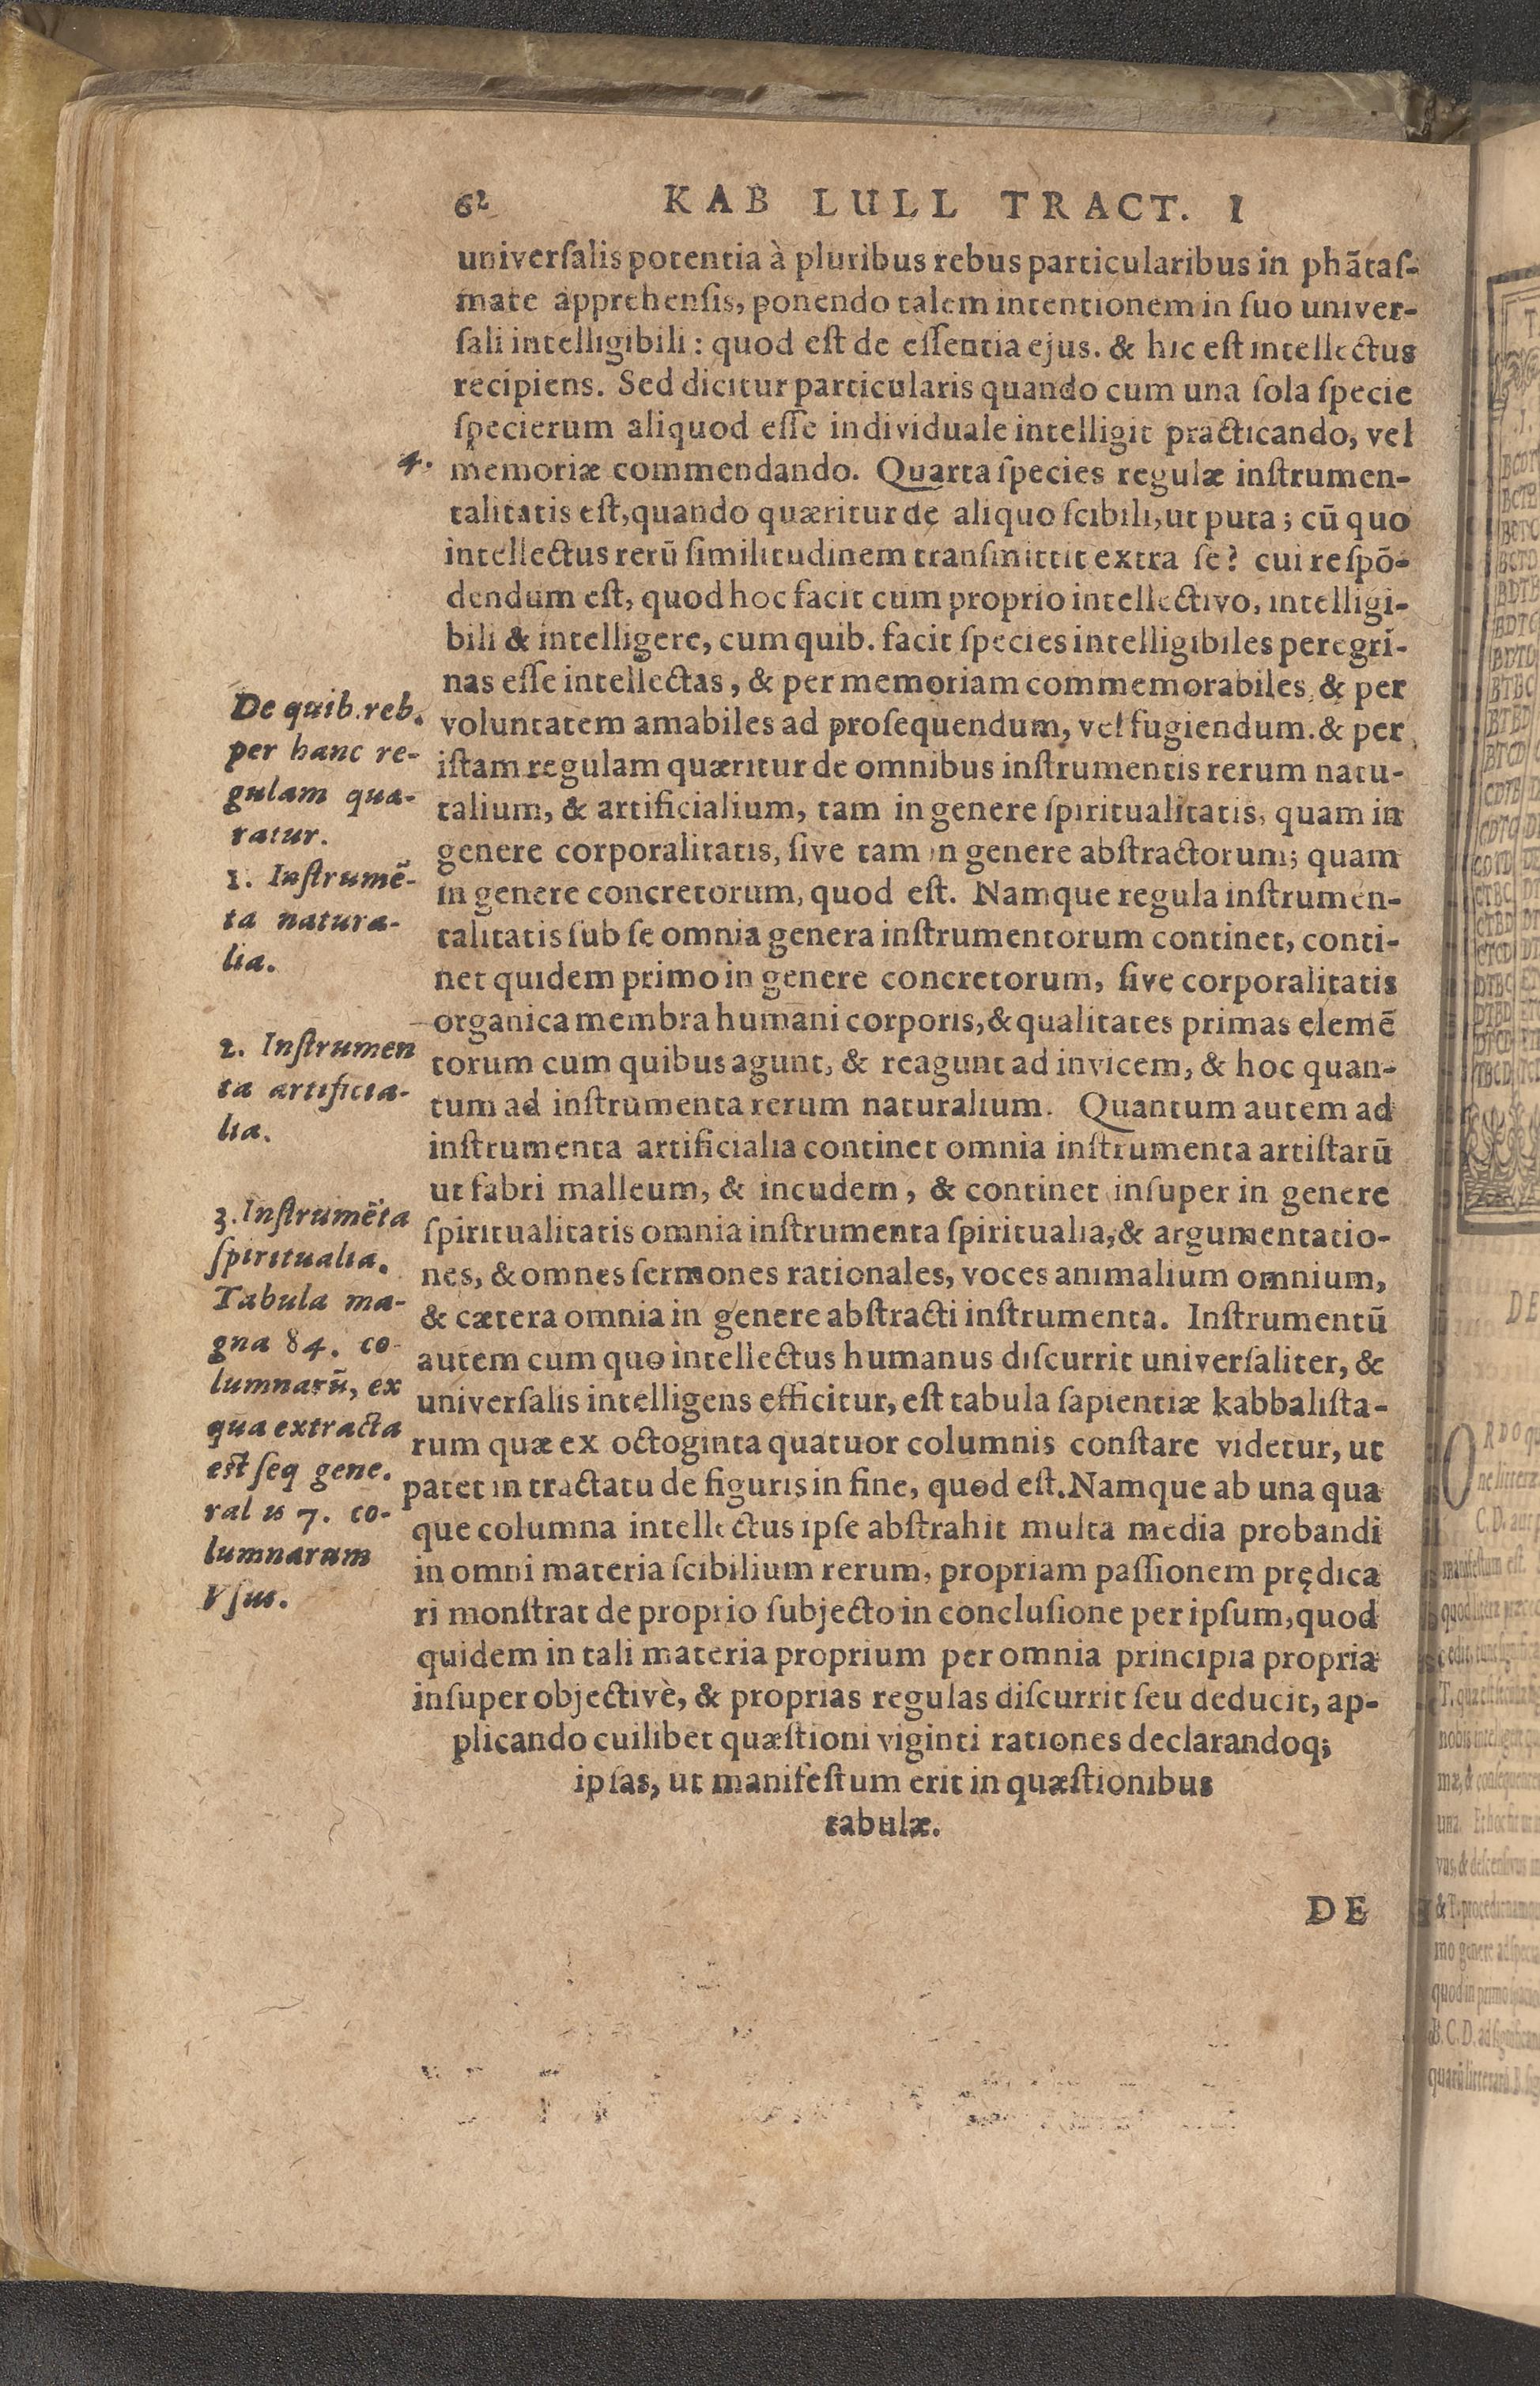 62 KAB LULL TRACT. I
univerſalis potentia à pluribus rebus particularibus in phãtaſ-
mate apprehenſis, ponendo talem intentionem in ſuo univer-
ſali intelligibili : quod eſt de eſſentia ejus. & hic eſt intellectus
recipiens. Sed dicitur particularis quando cum una ſola ſpecie
ſpecierum aliquod eſſe individuale intelligit practicando, vel
4. memoriæ commendando. Quarta ſpecies regulæ inſtrumen-
talitatis eſt, quando quæritur de aliquo ſcibili, ut puta ; cū quo
intellectus rerū ſimilitudinem tranſmittit extra ſe? cui reſpō-
dendum eſt, quod hoc facit cum proprio intellectivo, intelligi-
bili & intelligere, cum quib. facit ſpecies intelligibiles peregri-
nas eſſe intellectas, & per memoriam commemorabiles, & per
voluntatem amabiles ad proſequendum, vel fugiendum. & per
iſtam regulam quæritur de omnibus inſtrumentis rerum natu-
talium, & artificialium, tam in genere ſpiritualitatis, quam in
genere corporalitatis, ſive tam in genere abſtractorum; quam
in genere concretorum, quod eſt. Namque regula inſtrumen-
talitatis ſub ſe omnia genera inſtrumentorum continet, conti-
net quidem primo in genere concretorum, ſive corporalitatis
organica membra humani corporis, & qualitates primas elemē
torum cum quibus agunt, & reagunt ad invicem, & hoc quan-
tum ad inſtrumenta rerum naturalium. Quantum autem ad
inſtrumenta artificialia continet omnia inſtrumenta artiſtarū
ut fabri malleum, & incudem, & continet inſuper in genere
ſpiritualitatis omnia inſtrumenta ſpiritualia, & argumentatio-
nes, & omnes ſermones rationales, voces animalium omnium,
& cætera omnia in genere abſtracti inſtrumenta. Inſtrumentū
autem cum quo intellectus humanus diſcurrit univerſaliter, &
univerſalis intelligens efficitur, eſt tabula ſapientiæ kabbaliſta-
rum quæ ex octoginta quatuor columnis conſtare videtur, ut
patet in tractatu de figuris in fine, quod eſt. Namque ab una qua
que columna intellectus ipſe abſtrahit multa media probandi
in omni materia ſcibilium rerum, propriam paſſionem prędica
ri monſtrat de proprio ſubjecto in concluſione per ipſum, quod
quidem in tali materia proprium per omnia principia propria
inſuper objectivè, & proprias regulas diſcurrit ſeu deducit, ap-
plicando cuilibet quæſtioni viginti rationes declarandoq;
ipſas, ut manifeſtum erit in quæſtionibus
tabulæ.
DE
De quib. reb.
per hanc re-
gulam quæ-
ratur.
1. Inſtrumē-
ta natura-
lia.
2. Inſtrumen
ta artificia-
lia.
3. Inſtrumēta
ſpiritualia.
Tabula ma-
gna 84. co-
lumnarū, ex
qua extracta
eſt ſeq gene.
ral is 7. co-
lumnarum
Vſus.